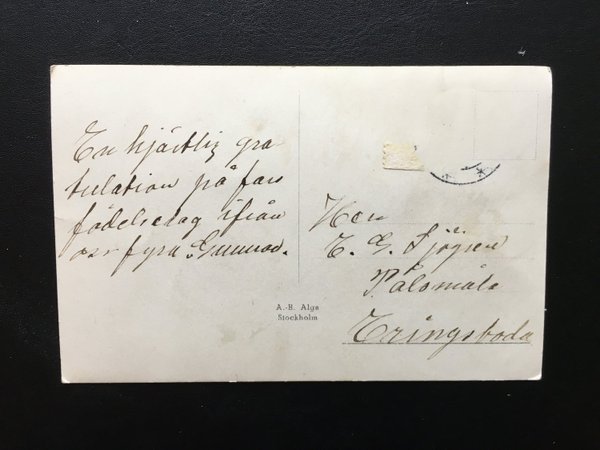 En hjärtlig gra
tulation på fars
födelsedag ifrån
oss fyra. Gunnar.
A.-B. Alga
Stockholm
Herr
C. G. Sjögren
Pålsmåla
Eringsboda